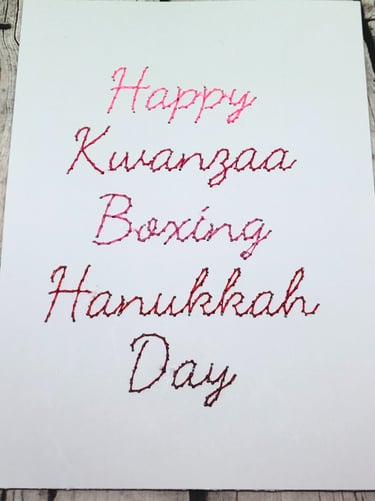 Happy
Kwanzaa
Boxing
Hanukkah
Day